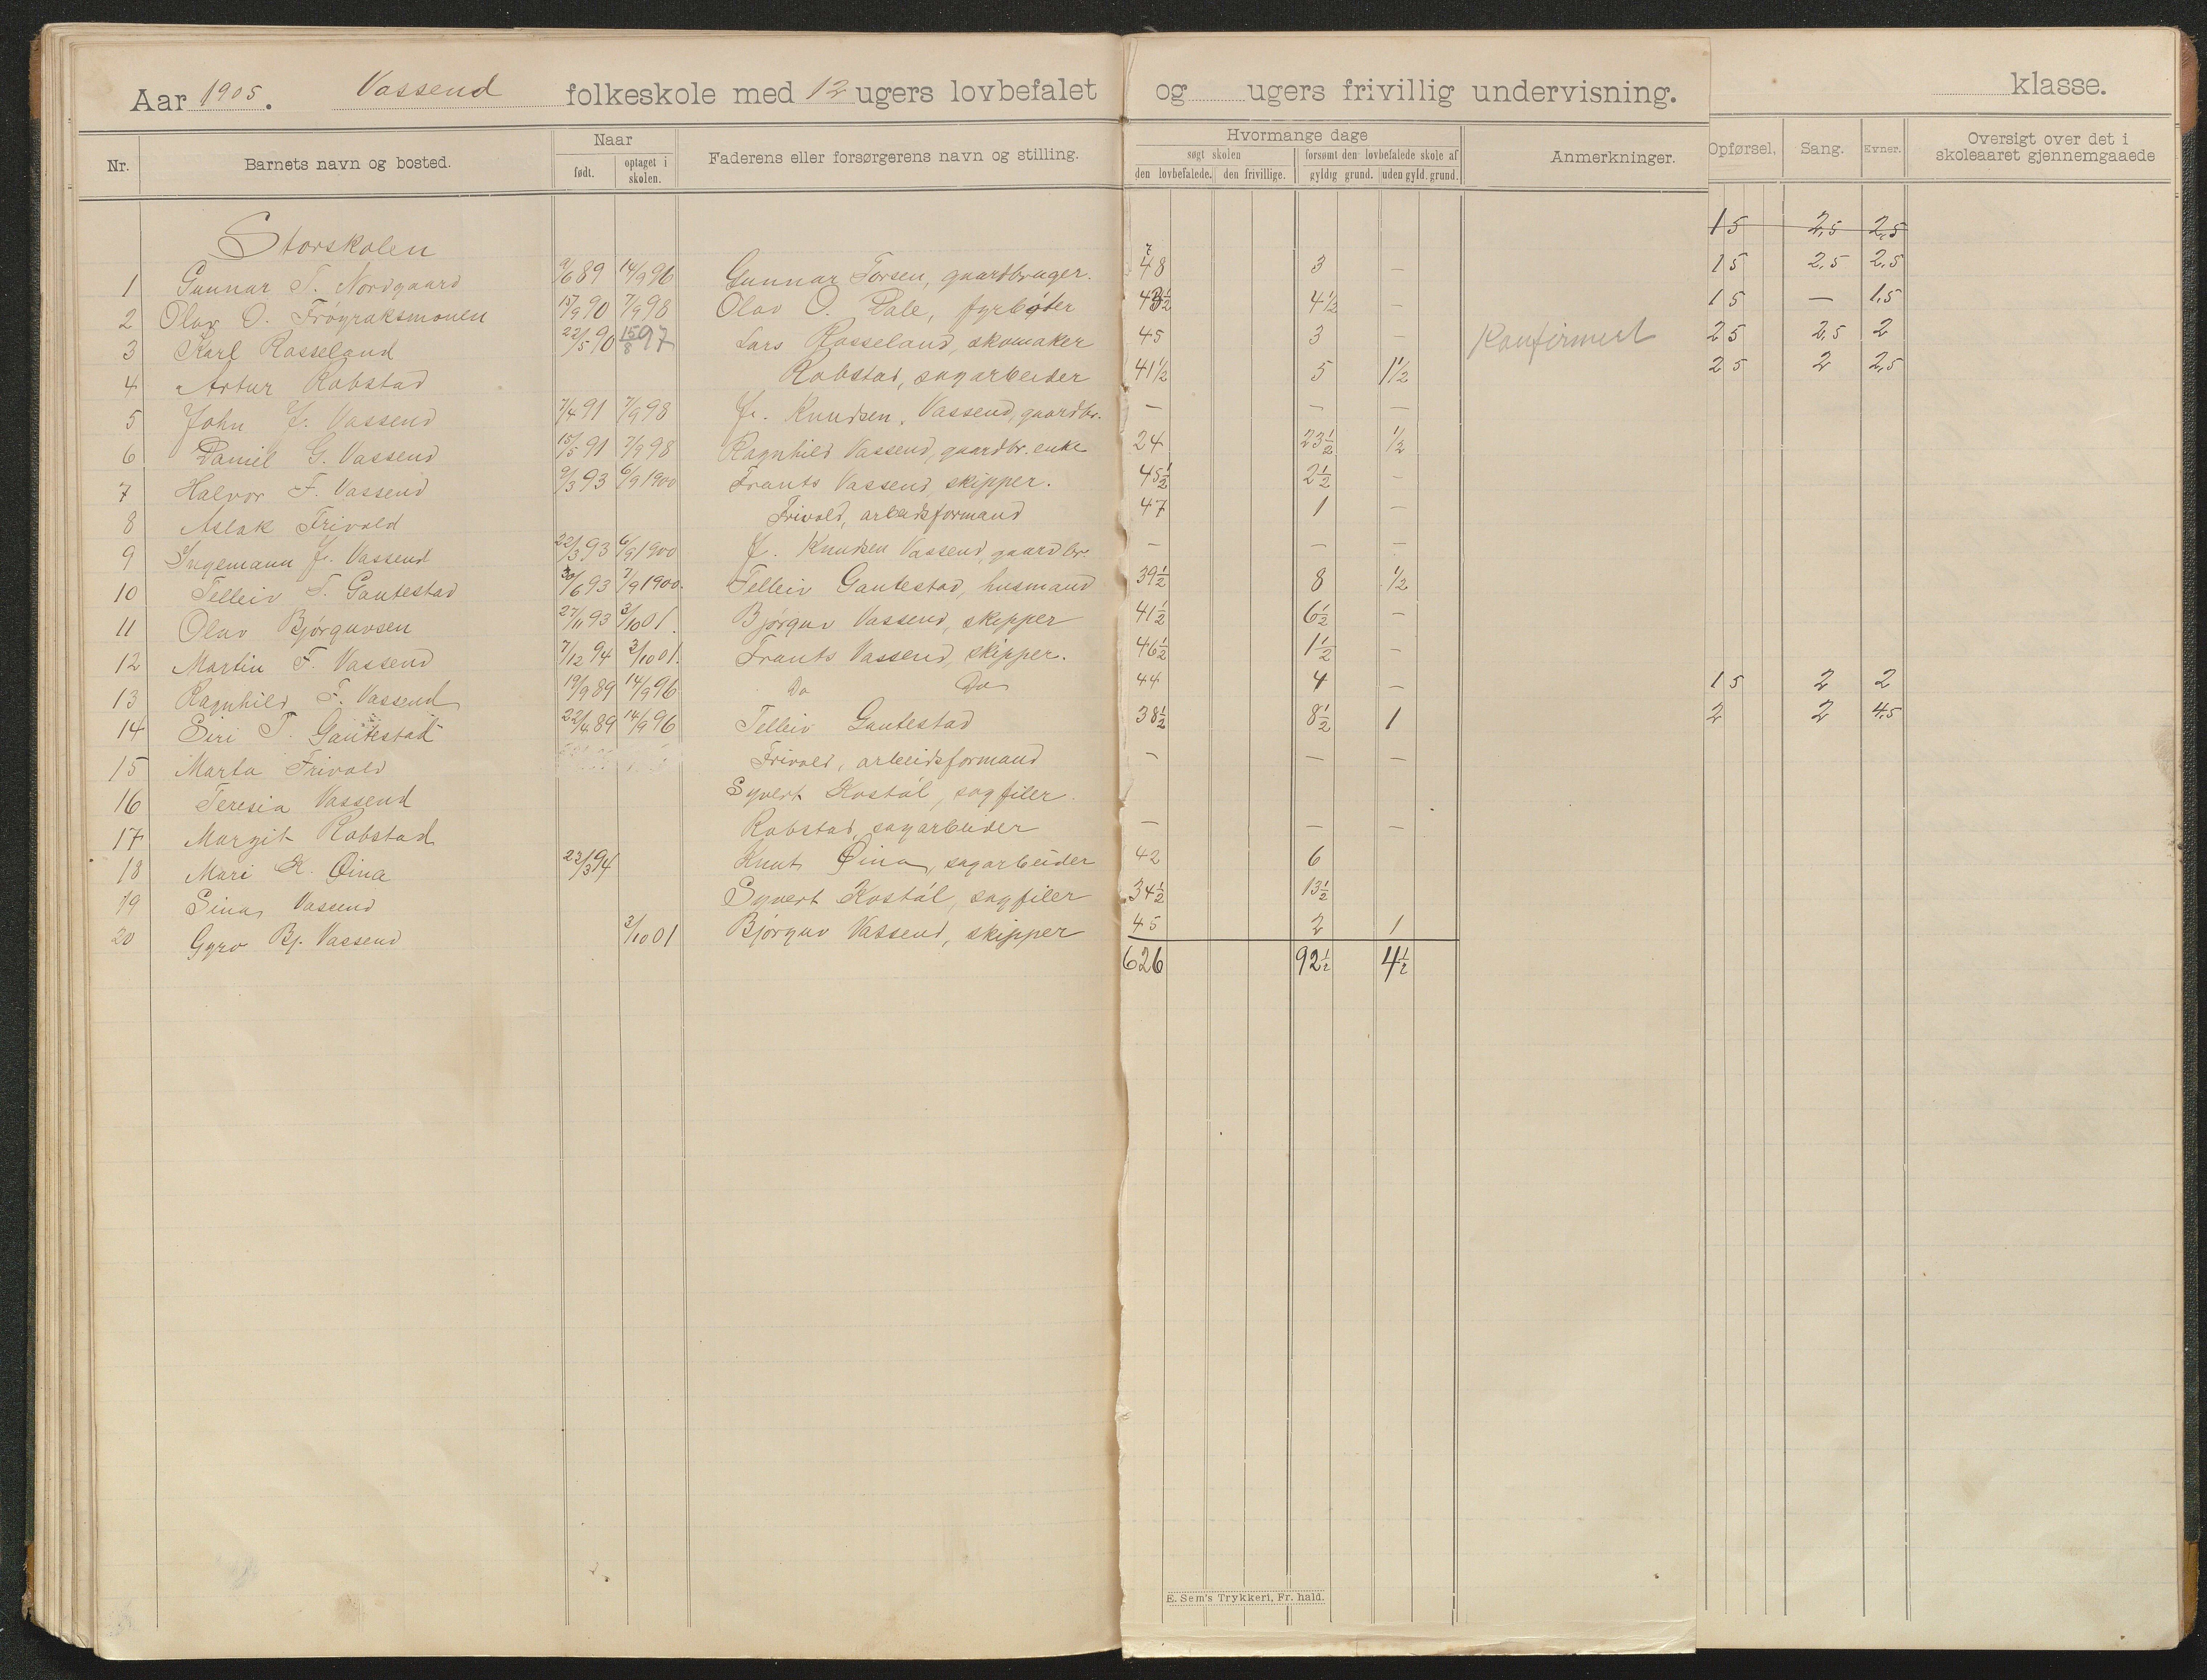 Aar 1905. Vassend folkeskole med 12 ugers lovbefalet og ugers frivillig undervisning. klasse.
Nr. Barnets navn og bosted. Naar født. optaget i skolen. Faderens eller forsørgerens navn og stilling. Hvormange dage søgt skolen den lovbefalede. den frivillige. forsømt den lovbefalede skole af gyldig grund. uden gyld. grund. Anmerkninger. Opførsel. Sang. Evner. Oversigt over det i skoleaaret gjennemgaaede
15 2,5 2,5
Storskolen
1 Gunnar T. Nordgaard 9/6 89 14/9 96 Gunnar Torsen, gaardbruger. 48 3 — 15 2,5 2,5
2 Olav O. Frøyraksmonen 15/9 90 7/9 98 Olav O. Dale, fyrbøter 43½ 4½ — 15 — 1,5
3 Karl Rosseland 22/5 90 15/8 97 Lars Rosseland, skomaker 45 3 — Konfirmert 25 2,5 2
4 Artur Robstad Robstad, sagarbeider 41½ 5 1½ 25 2 2,5
5 John J. Vassend 7/4 91 7/9 98 J. Knudsen, Vassend, gaardbr. — — —
6 Daniel G. Vassend 15/5 91 7/9 98 Ragnhild Vassend, gaardbr. enke 24 23½ ½
7 Halvor F. Vassend 9/3 93 6/9 1900 Frants Vassend, skipper. 45½ 2½ —
8 Aslak Trivold Trivold, arbeidsformand 47 1 —
9 Ingemann J. Vassend 22/3 93 6/9 1900 J. Knudsen Vassend, gaardbr. — — —
10 Telleiv T. Gautestad 30/6 93 7/9 1900. Telleiv Gautestad, husmand 39½ 8 ½
11 Olav Bjørguvsen 27/11 93 3/10 01. Bjørguv Vassend, skipper 41½ 6½ —
12 Martin F. Vassend 7/12 94 3/10 01. Frants Vassend, skipper. 46½ 1½ —
13 Ragnhild F. Vassend 19/9 89 14/9 96 Do Do 44 4 — 15 2 2
14 Siri T. Gautestad 22/4 89 14/9 96 Telleiv Gautestad 38½ 8½ 1 2 2 4,5
15 Marta Trivold Trivold, arbeidsformand — — —
16 Teresia Vassend Syvert Kostøl, sagfiler.
17 Margit Robstad Robstad, sagarbeider — — —
18 Mari K. Øina 22/3 94 Knut Øina, sagarbeider 42 6
19 Sina Vassend Syvert Kostøl, sagfiler 34½ 13½
20 Gyro Bj. Vassend 3/10 01 Bjørguv Vassend, skipper 45 2 1
626 92½ 4½
E. Sem's Trykkeri, Fr. hald.